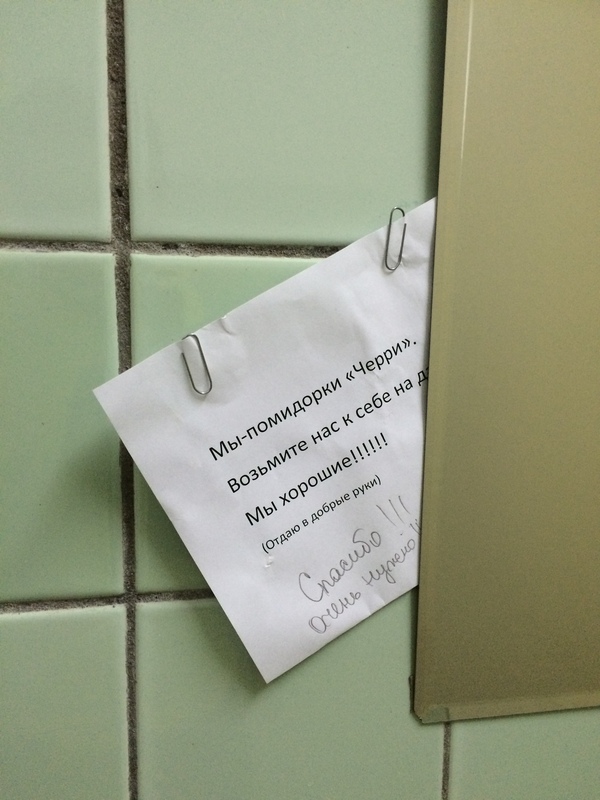 Мы-помидорки «Черри».
Возьмите нас к себе на
Мы хорошие!!!!!!
(Отдаю в добрые руки)
Спасибо !!!
очень нужно !!!